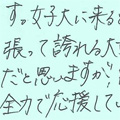 す。女子大に来る
張って誇れる大
だと思いますが、
全力で応援してい